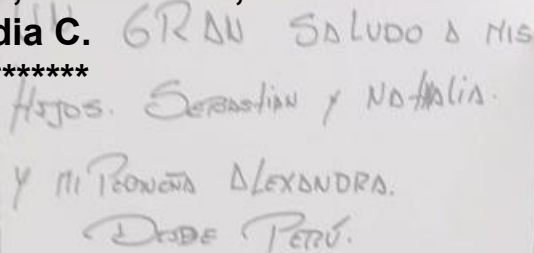 dia C. GRAN SALUDO A MIS
*******
HIJOS. SEBASTIAN Y NATHALIA.
Y MI PEQUEÑA ALEXANDRA.
DESDE PERÚ.